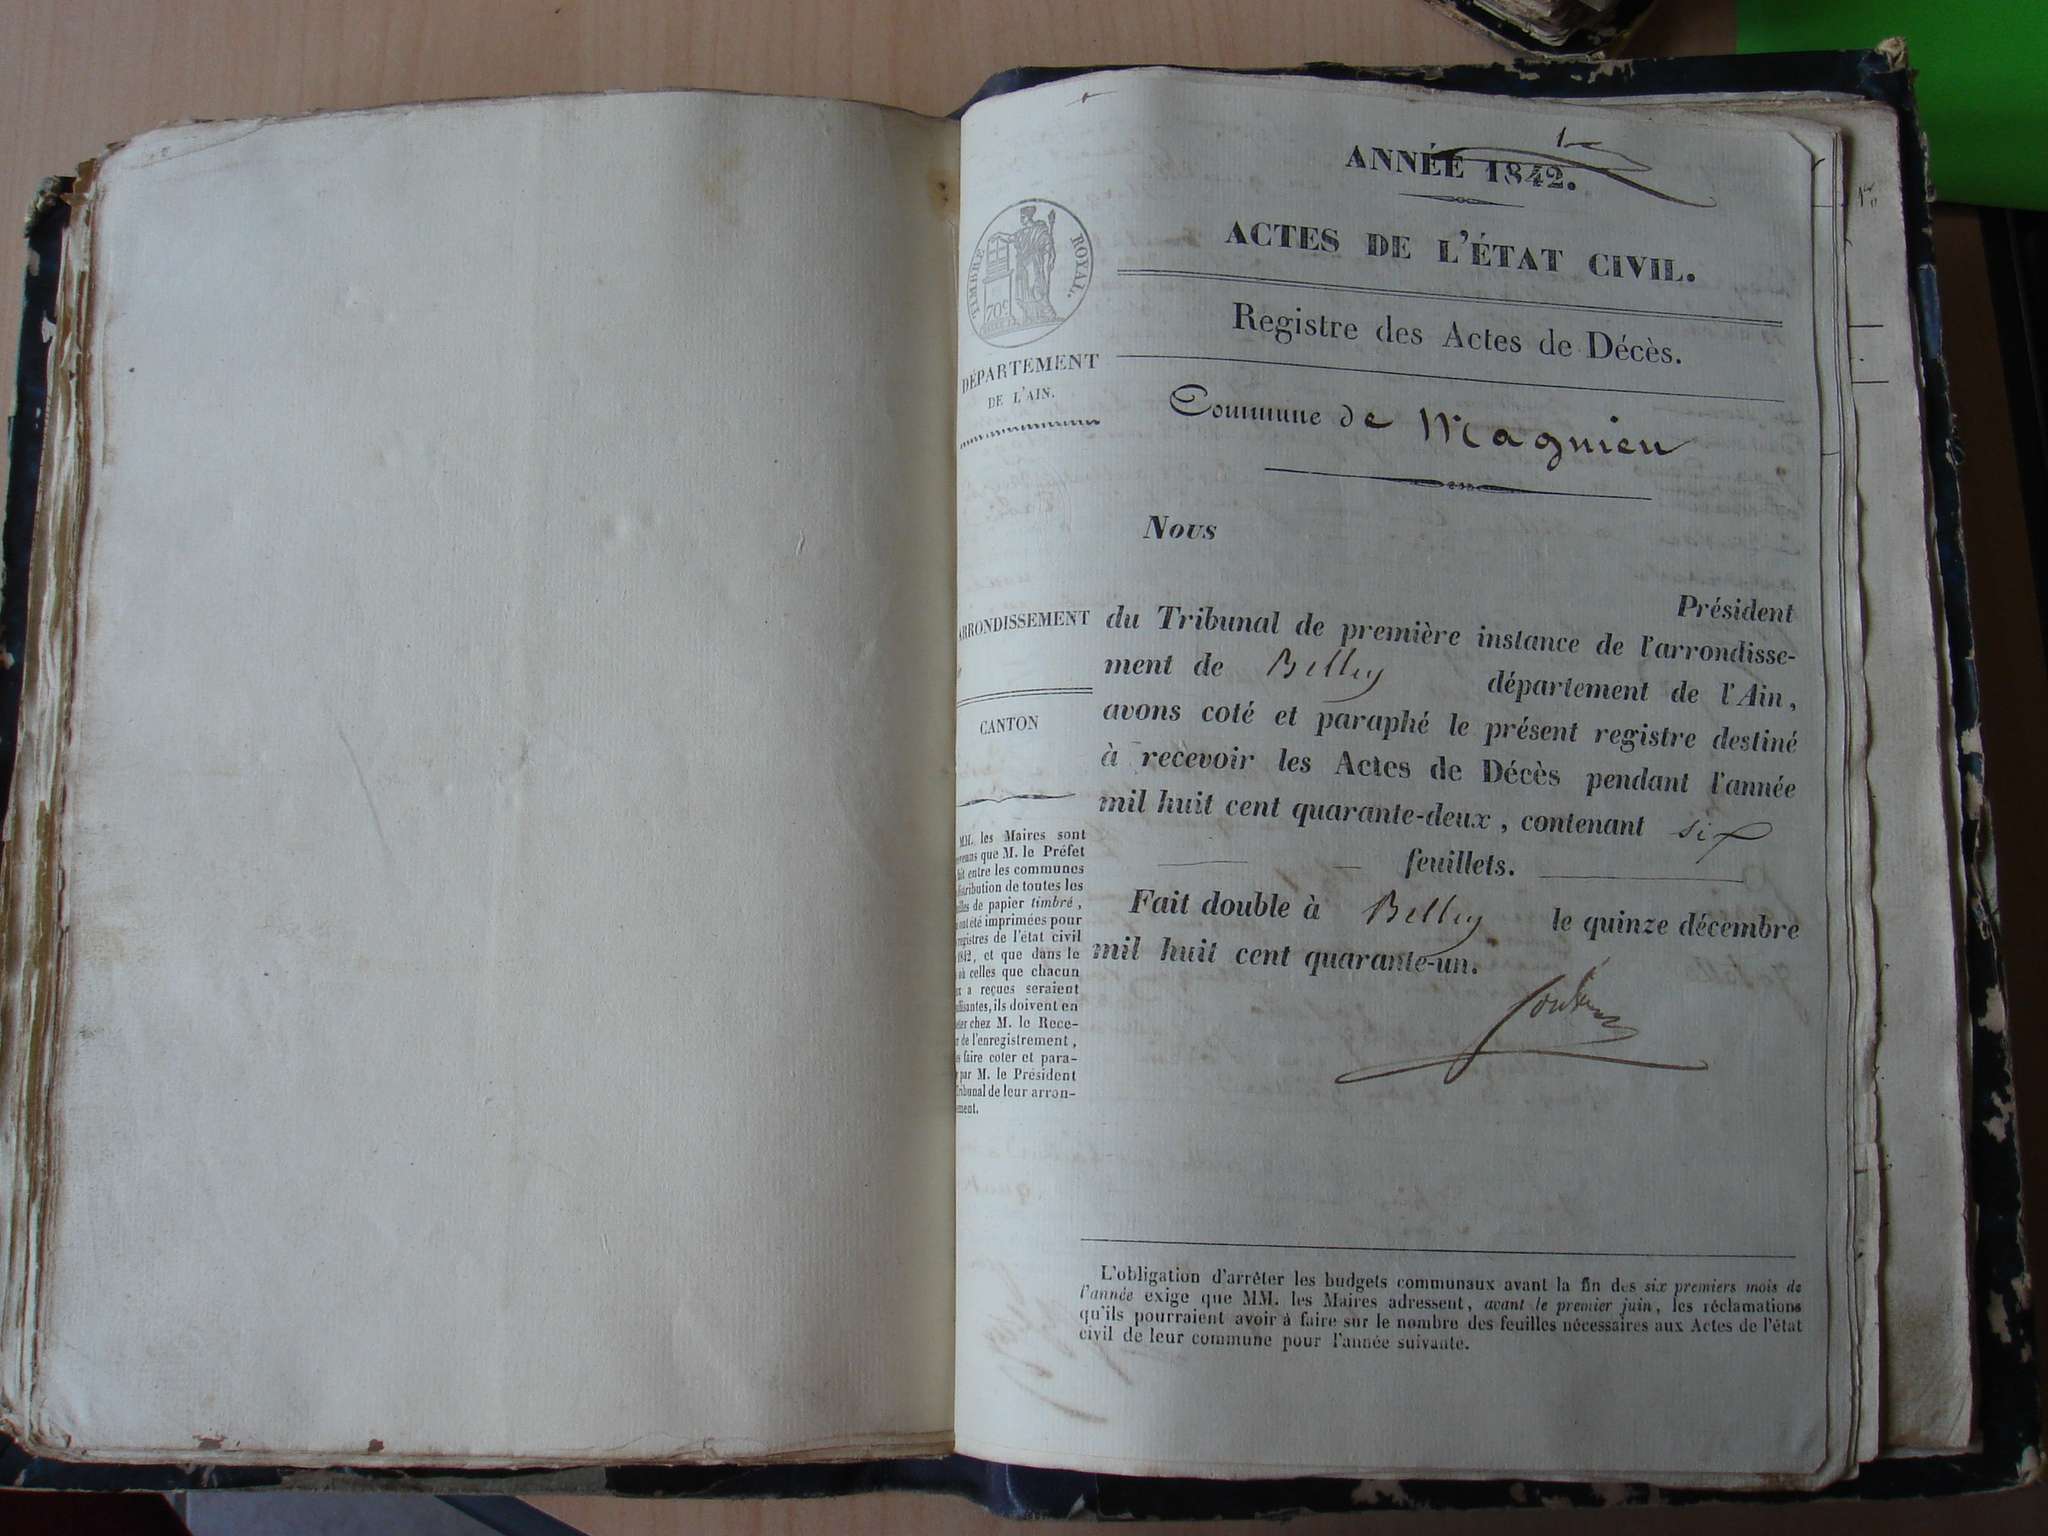 1er
ANNÉE 1842.
ACTES DE L'ÉTAT CIVIL.
TIMBRE ROYAL.
70c
Registre des Actes de Décès.
DÉPARTEMENT
DE L'AIN.
Commune de Magnieu
Nous
Président
ARRONDISSEMENT
du Tribunal de première instance de l'arrondisse-
ment de Belley département de l'Ain,
avons coté et paraphé le présent registre destiné
à recevoir les Actes de Décès pendant l'année
mil huit cent quarante-deux, contenant six
feuillets.
Fait double à Belley le quinze décembre
mil huit cent quarante-un.
CANTON
MM. les Maires sont
que M. le Préfet
fait entre les communes
distribution de toutes les
de papier timbré,
ont été imprimées pour
registres de l'état civil
1842, et que dans le
où celles que chacun
a reçues seraient
ils doivent en
chez M. le Rece-
de l'enregistrement,
faire coter et para-
par M. le Président
Tribunal de leur arron-
ement.
L'obligation d'arrêter les budgets communaux avant la fin des six premiers mois de
l'année exige que MM. les Maires adressent, avant le premier juin, les réclamations
qu'ils pourraient avoir à faire sur le nombre des feuilles nécessaires aux Actes de l'état
civil de leur commune pour l'année suivante.